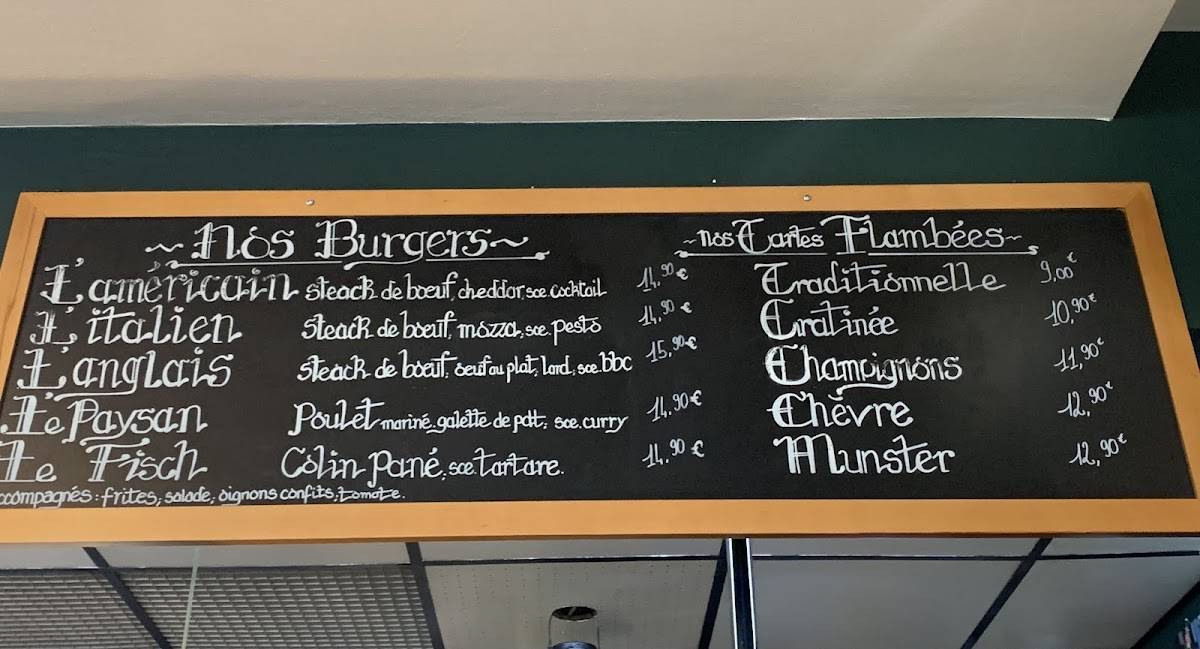 ~ Nos Burgers ~
L'américain steack de boeuf, cheddar, sce. Cocktail 14.90 €
L'italien steack de boeuf, mozza, sce pesto 14.90 €
L'anglais steack de boeuf, oeuf au plat, lard, sce. bbc 15.90 €
Le Paysan Poulet mariné, galette de pdt, sce. curry 14.90 €
Le Fisch Colin pané, sce tartare. 14.90 €
ccompagnés : frites, salade, oignons confits, tomate.
~ nos Tartes Flambées ~
Traditionnelle 9,00€
Gratinée 10,90€
Champignons 11,90€
Chèvre 12,90€
Munster 12,90€